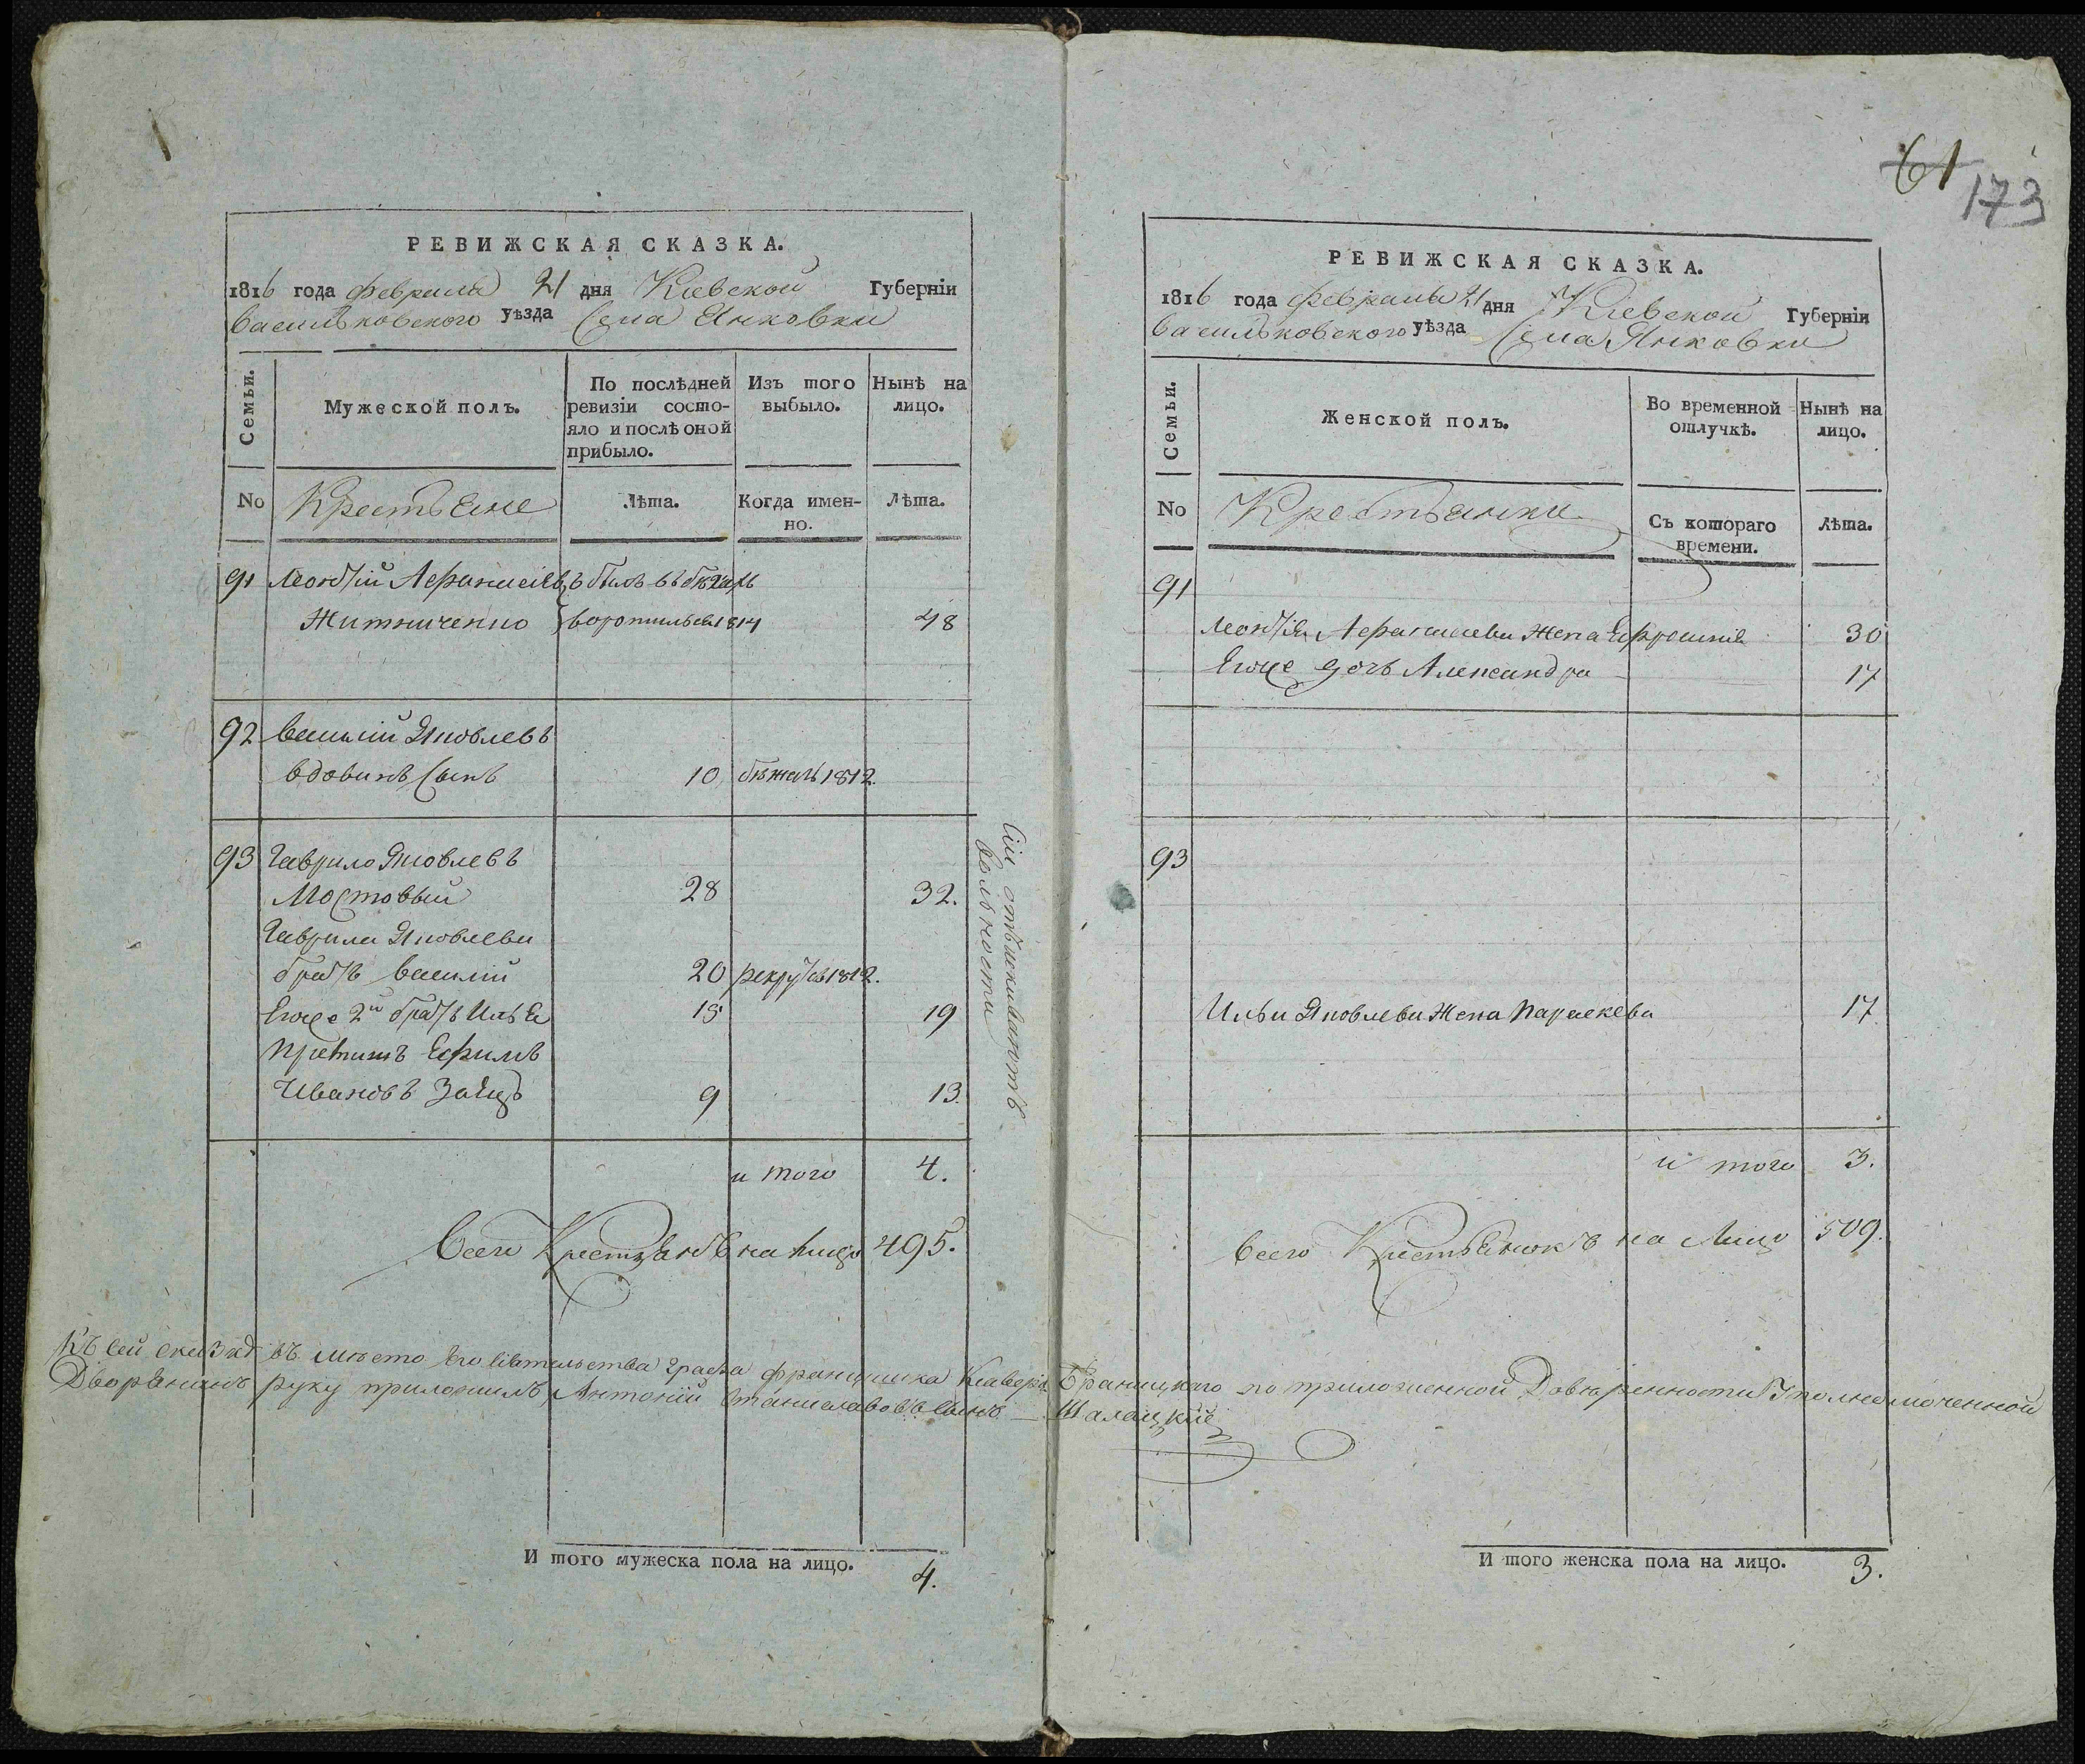 РЕВИЖСКАЯ СКАЗКА.
1816 года февраля 21 дня Кіевской Губерніи
васильковского уѣзда Села Янковки
Семьи.
Мужеской полъ.
По послѣдней ревизіи состояло и послѣ оной прибыло.
Изъ того выбыло.
Нынѣ на лицо.
No
Крестьяне
Лѣта.
Когда именно.
Лѣта.
91 Леонтій Афанасіевъ былъ въ бѣгахъ
Житниченко воротилься 1814 48
92 василій Яковлевъ
вдовинъ Сынъ 10 бѣжалъ 1812.
93 Гаврило Яковлевъ
Мостовый 28 32.
Гаврила Яковлева
братъ василій 20 рекрутъ 1812.
Егоже 2й братъ Илья 15 19
Ефимъ
Ивановъ Заяцъ 9 13.
Сіи отъискиваютъ
вольности
и того 4.
всего Крестьянъ на лицо 495.
Къ сей сказкѣ въ мѣсто Его Сіятельства Графа франциска Ксаверія Браницкаго по приложенной Довѣренности Уполномоченной
Дворянинъ руку приложилъ Антоній Станиславовъ Сынъ Шалацкій
И того мужеска пола на лицо. 4.
61
173
РЕВИЖСКАЯ СКАЗКА.
1816 года февраля 21 дня Кіевской Губерніи
васильковского уѣзда Села Янковки
Семьи.
Женской полъ.
Во временной отлучкѣ.
Нынѣ на лицо.
No
Крестьянки
Съ котораго времени.
Лѣта.
91
Леонтія Афанасиева Жена Ефросинія 30
Егоже дочь Александра 17
93
Ильи Яковлева Жена Параскева 17
и того 3.
всего Крестьянокъ на Лицо 509.
И того женска пола на лицо. 3.